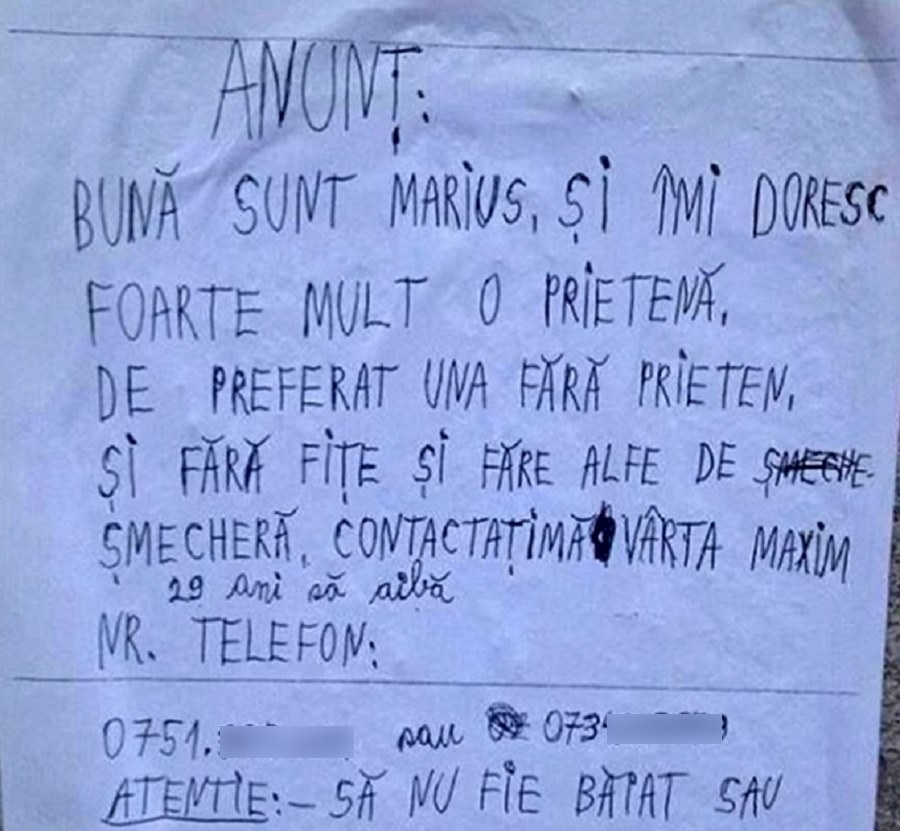 ANUNȚ:
BUNĂ SUNT MARIUS, ȘI ÎMI DORESC
FOARTE MULT O PRIETENĂ,
DE PREFERAT UNA FĂRĂ PRIETEN,
ȘI FĂRĂ FIȚE ȘI FĂRE ALFE DE ȘMECHE-
ȘMECHERĂ, CONTACTAȚIMĂ VÂRTA MAXIM
29 ani să aibă
NR. TELEFON:
0751. sau 073
ATENTIE:- SĂ NU FIE BĂTAT SAU